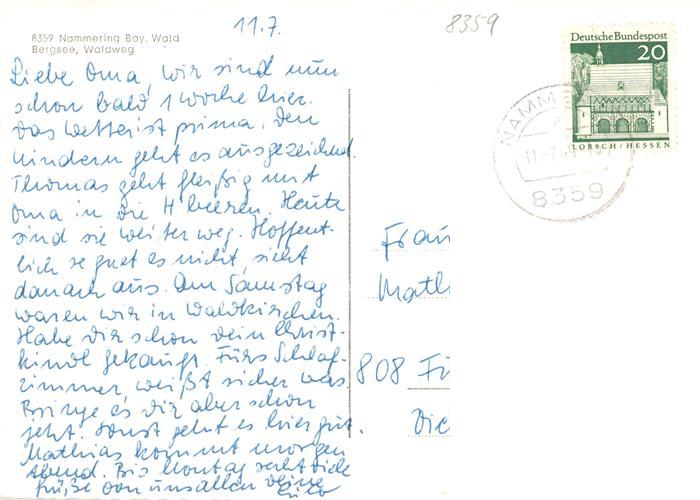 11.7.
8359
8359 Nammering Bay. Wald
Bergsee, Waldweg
Deutsche Bundespost
20
LORSCH/HESSEN
NAMM
11.-7.
8359
Liebe Oma, wir sind nun
schon bald 1 Woche hier.
Das Wetter ist prima. Den
Kindern geht es ausgezeichnet.
Thomas geht fleißig mit
Oma in die H beeren. Heute
sind sie weiter weg. Hoffent-
lich regnet es nicht, sieht
danach aus. Am Samstag
waren wir in Waldkirchen.
Habe dir schon dein Christ-
kindl gekauft. Fürs Schlaf-
zimmer, weißt sicher was.
Bringe es dir aber schon
jetzt. Sonst geht es hier gut.
Mathias kommt morgen
Abend. Bis Montag
Grüße von uns allen deine
Frau
Math
808 Fü
Die